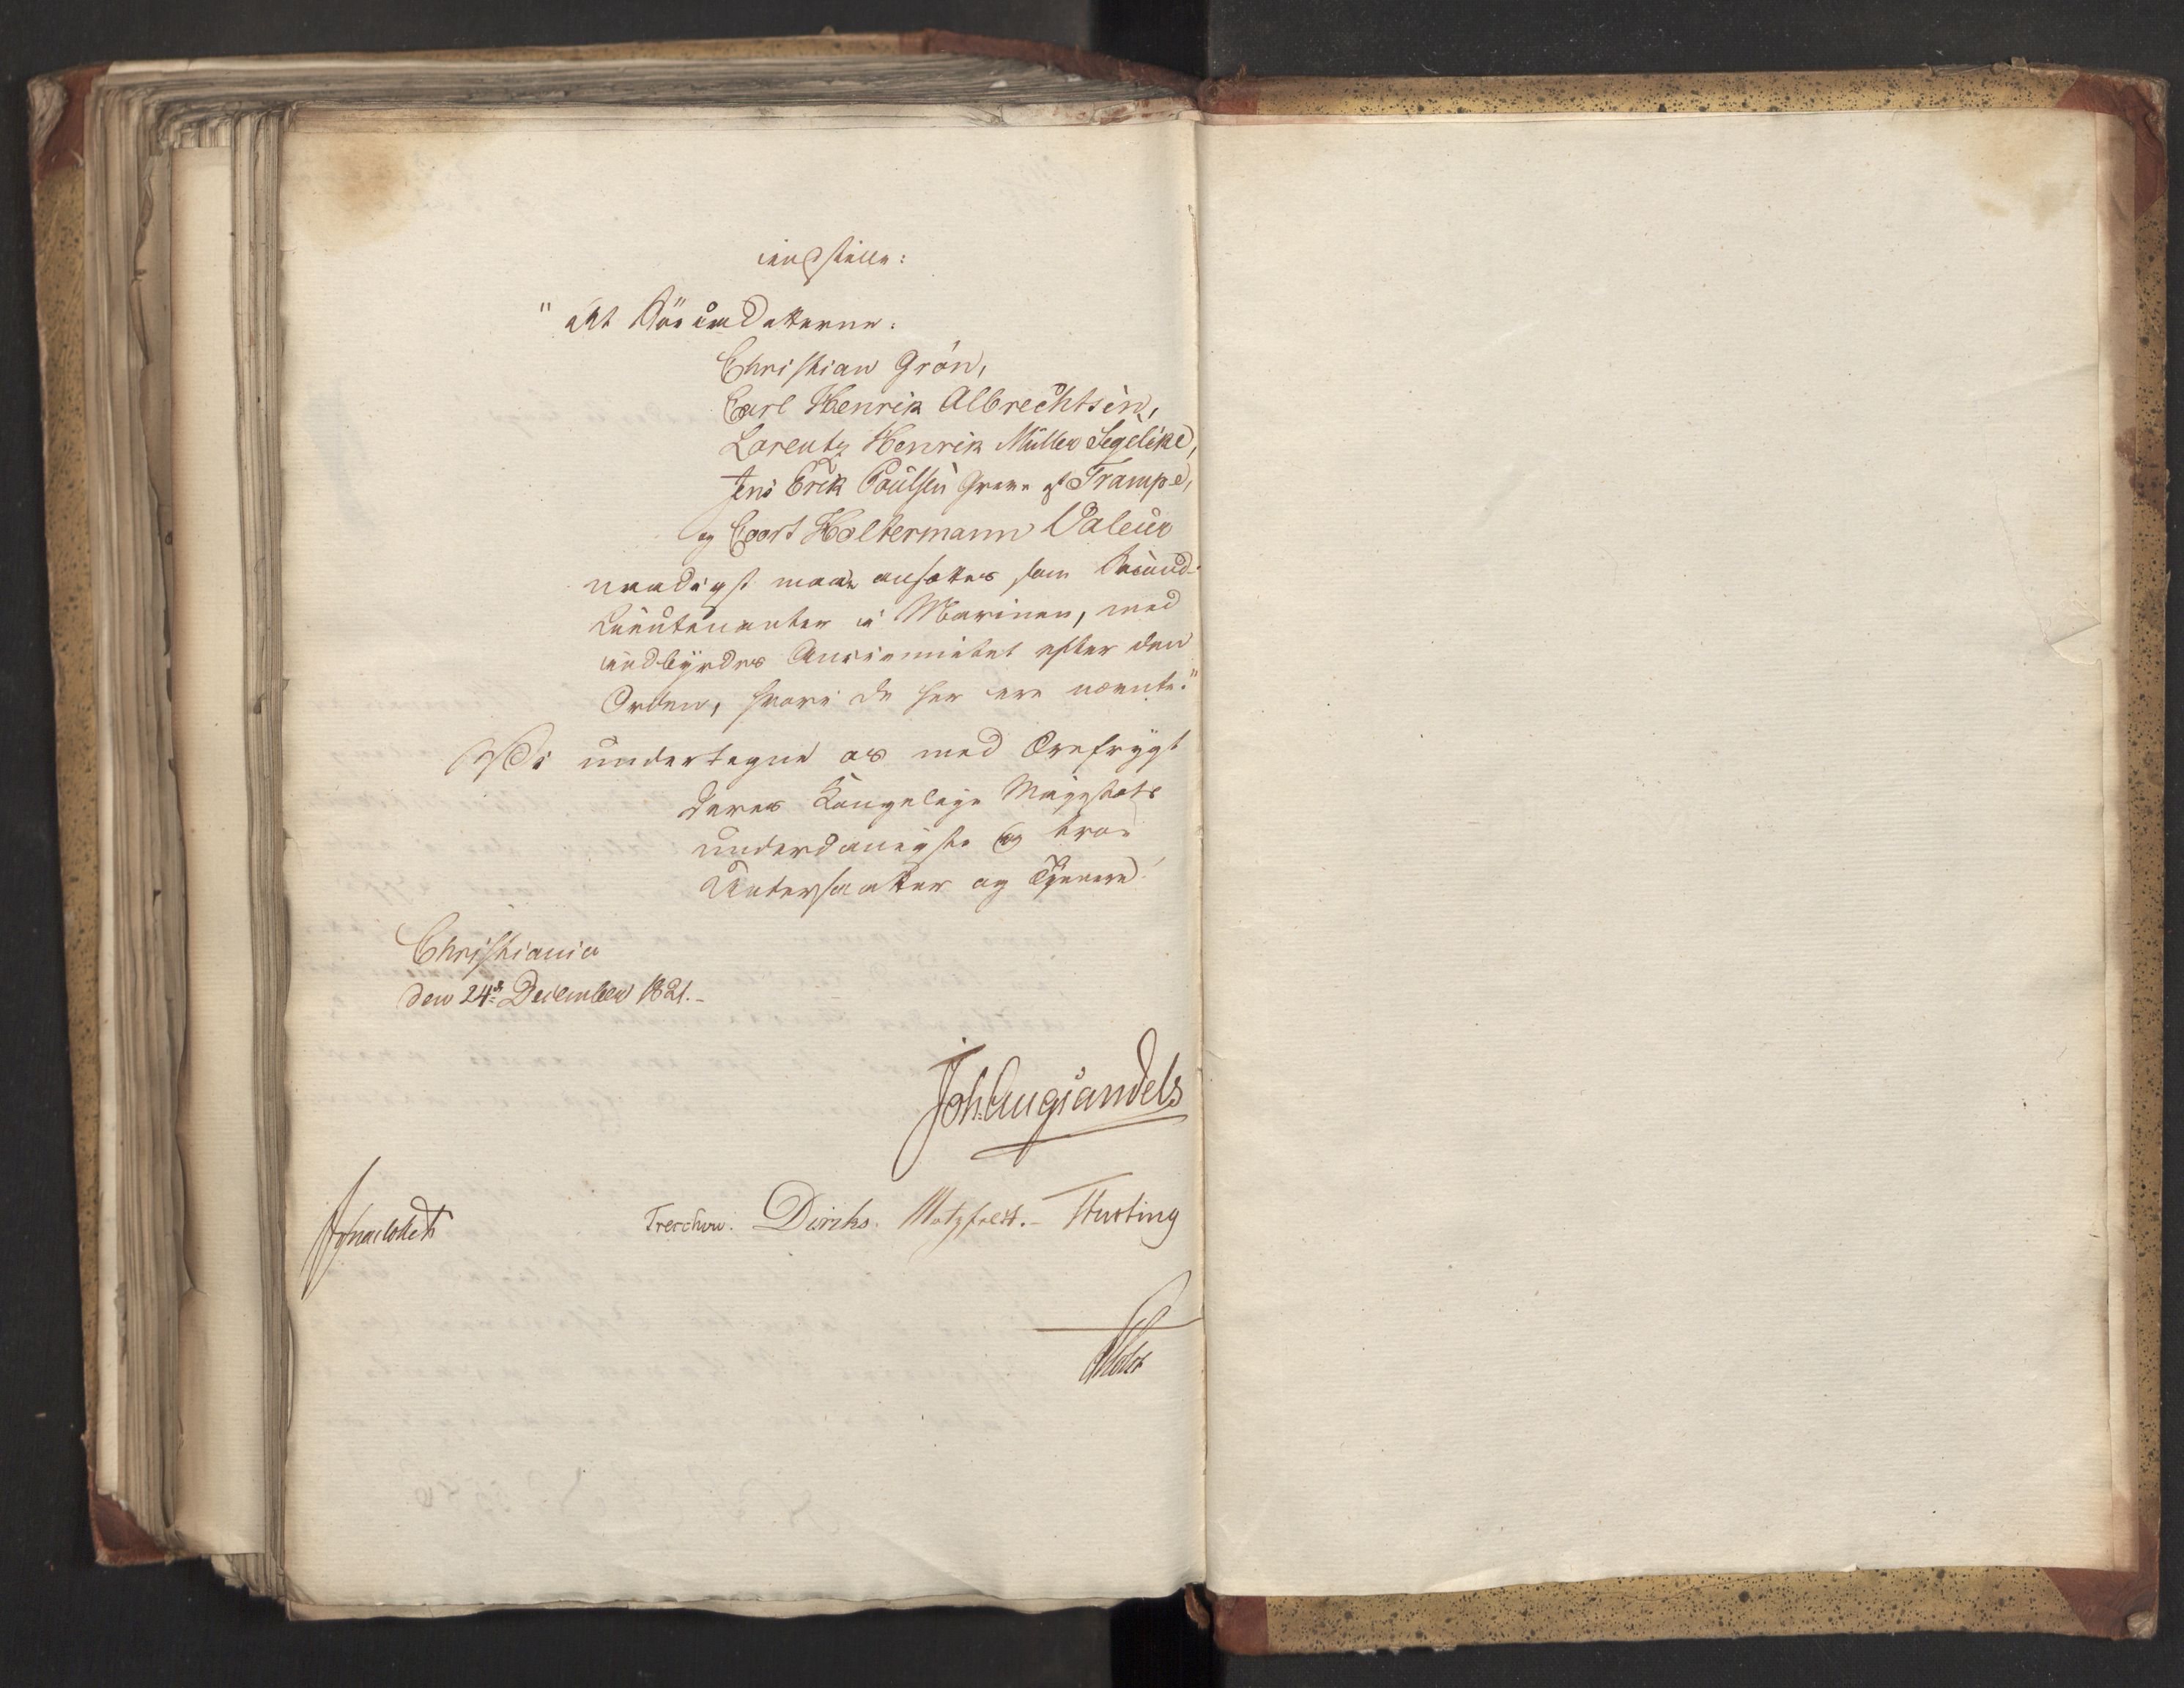 indstille:
"at Söecadetterne:
Christian Grön,
Carl Henrik Albrechtsen,
Lorentz Henrik Müller Segelcke,
Jens Erik Poulsen Greve af Trampe,
og Coort Holtermann Valeur
naadigst maae ansættes som Secund-
Lieutenanter i Marinen, med
indbyrdes Anciennitet efter den
Orden, hvori de her ere nævnte."
Vi undertegne os med Ærefrygt
Deres Kongelige Majestets
underdanigste og troe
Undersaatter og Tjenere.
Christiania
den 24de December 1821.-
Joh: Aug: Sandels
Treschow. Diriks. Motzfeldt.- Fasting
Holst